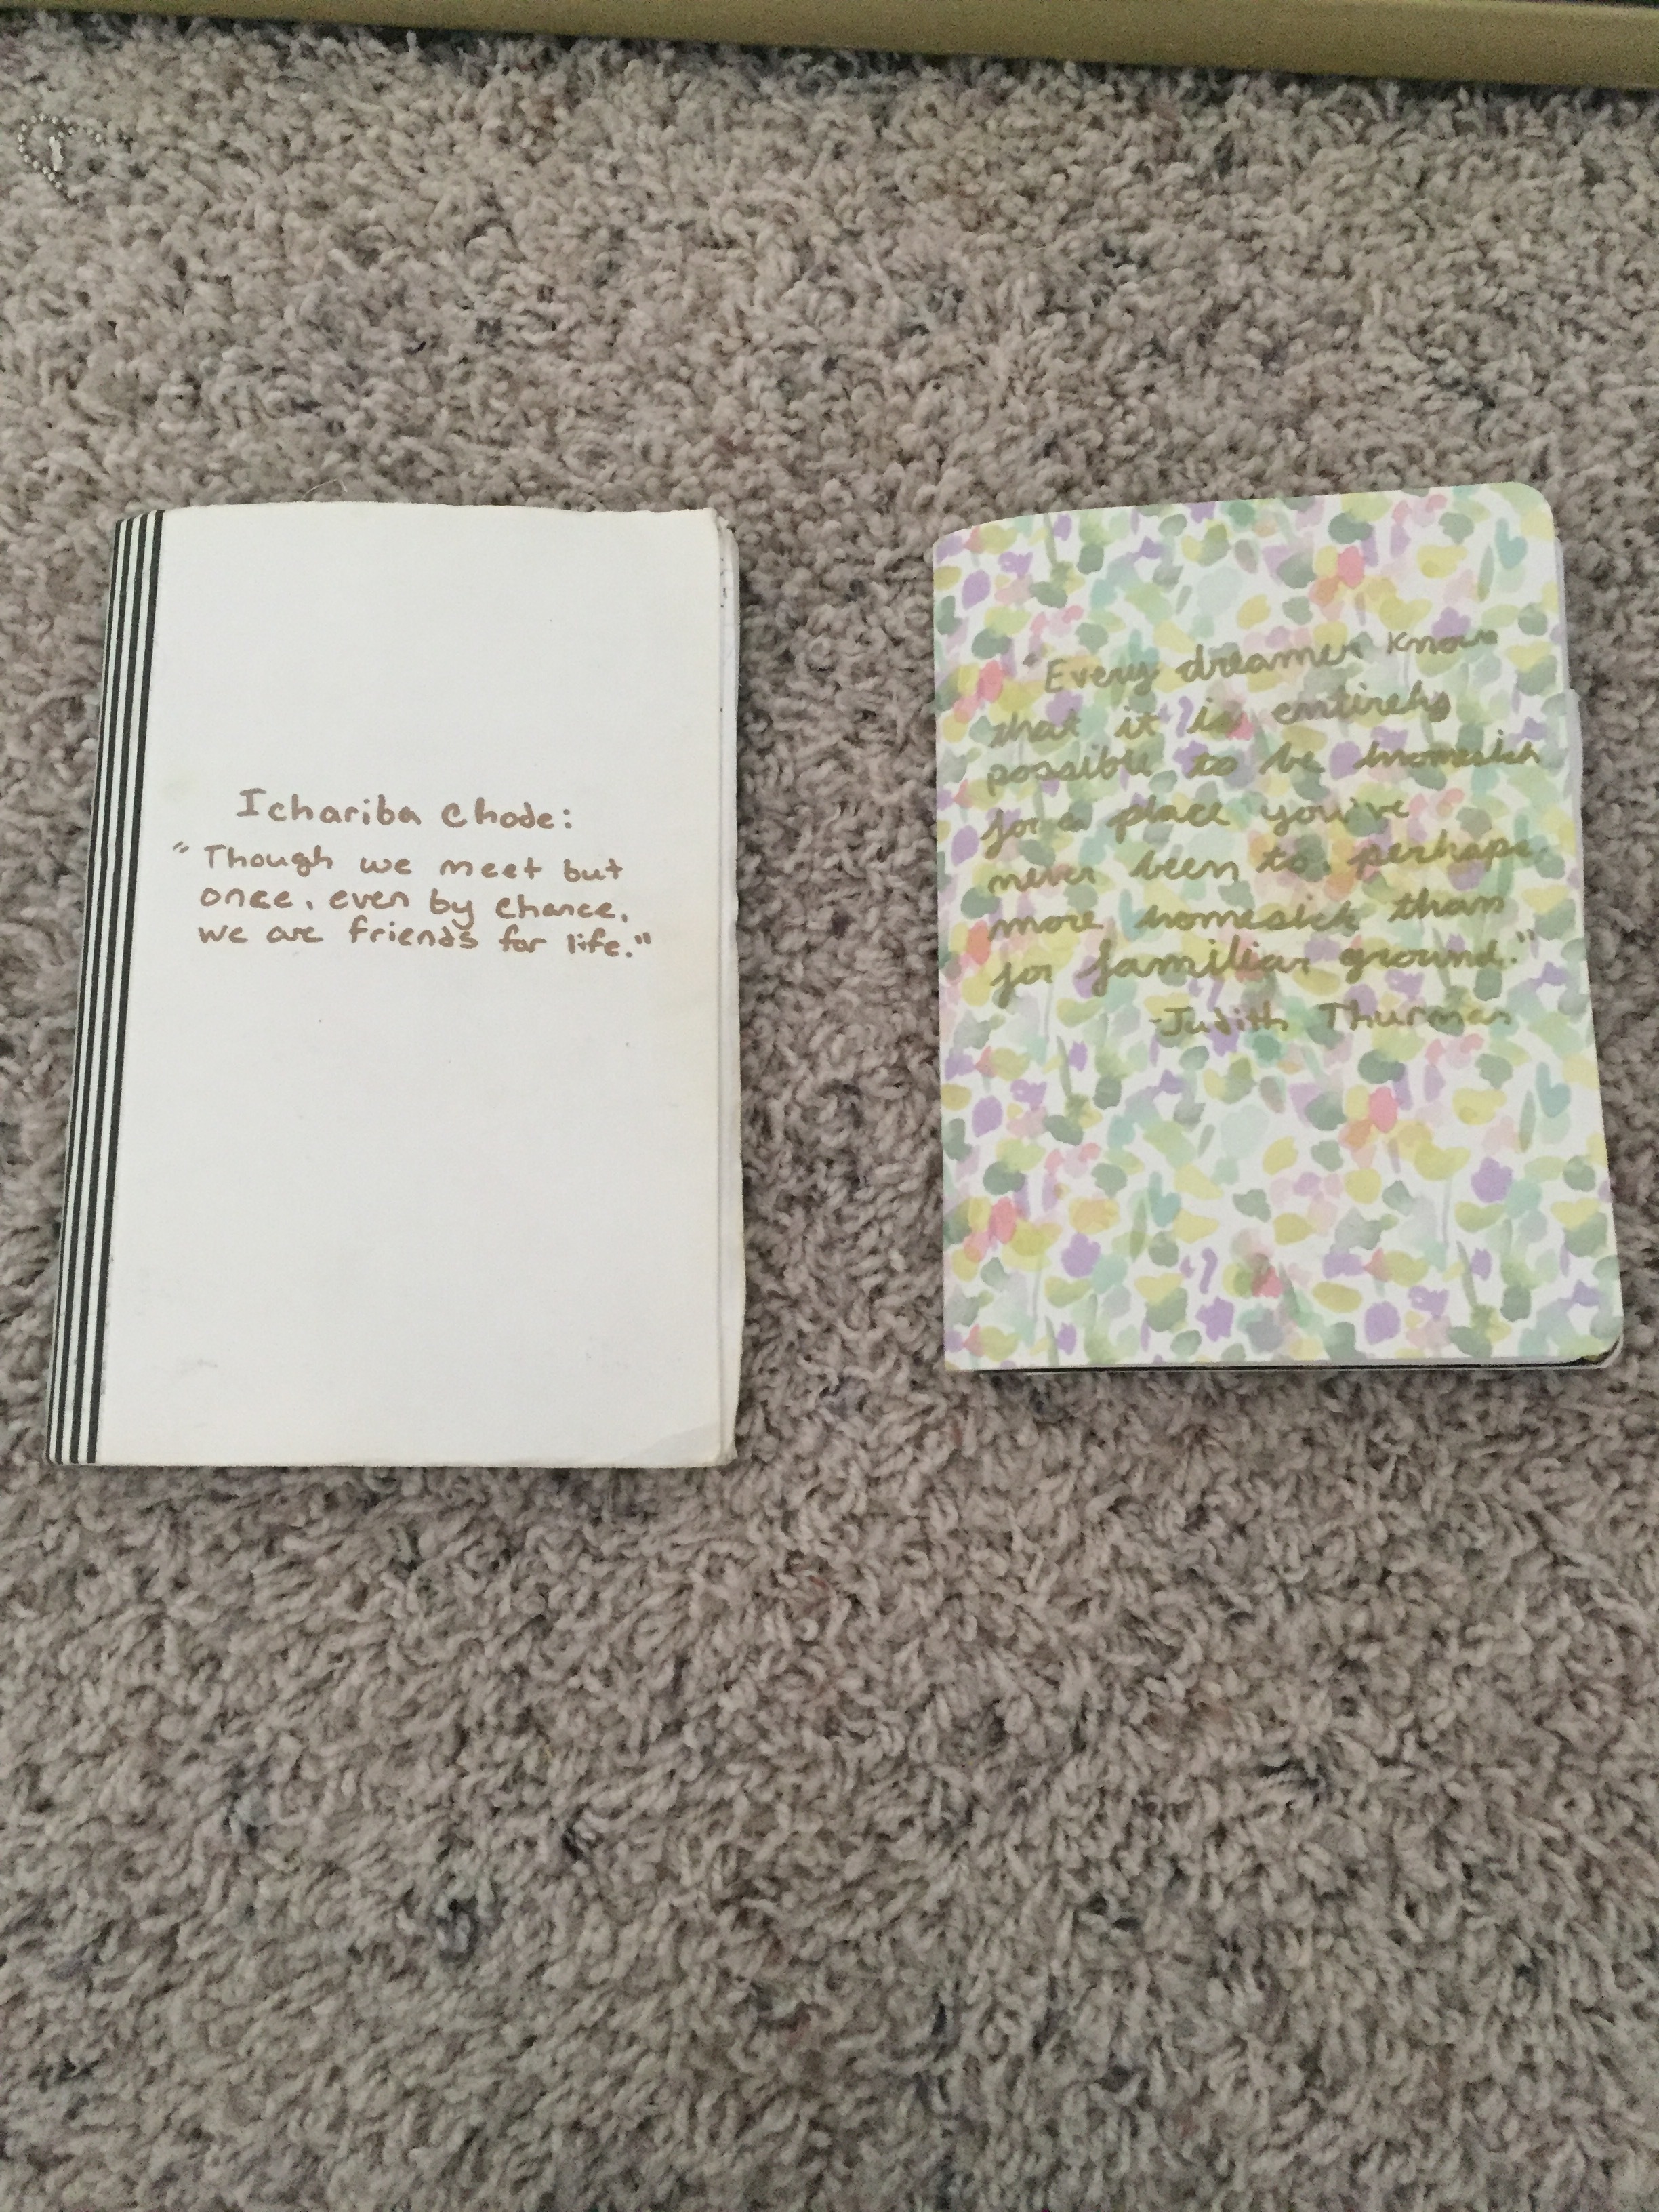 Ichariba Chode:
"Though we meet but
once, even by chance,
we are friends for life."
"Every dreamer knows
that it is entirely
possible to be homesick
for a place you've
never been to, perhaps
more homesick than
for familiar ground."
-Judith Thurman